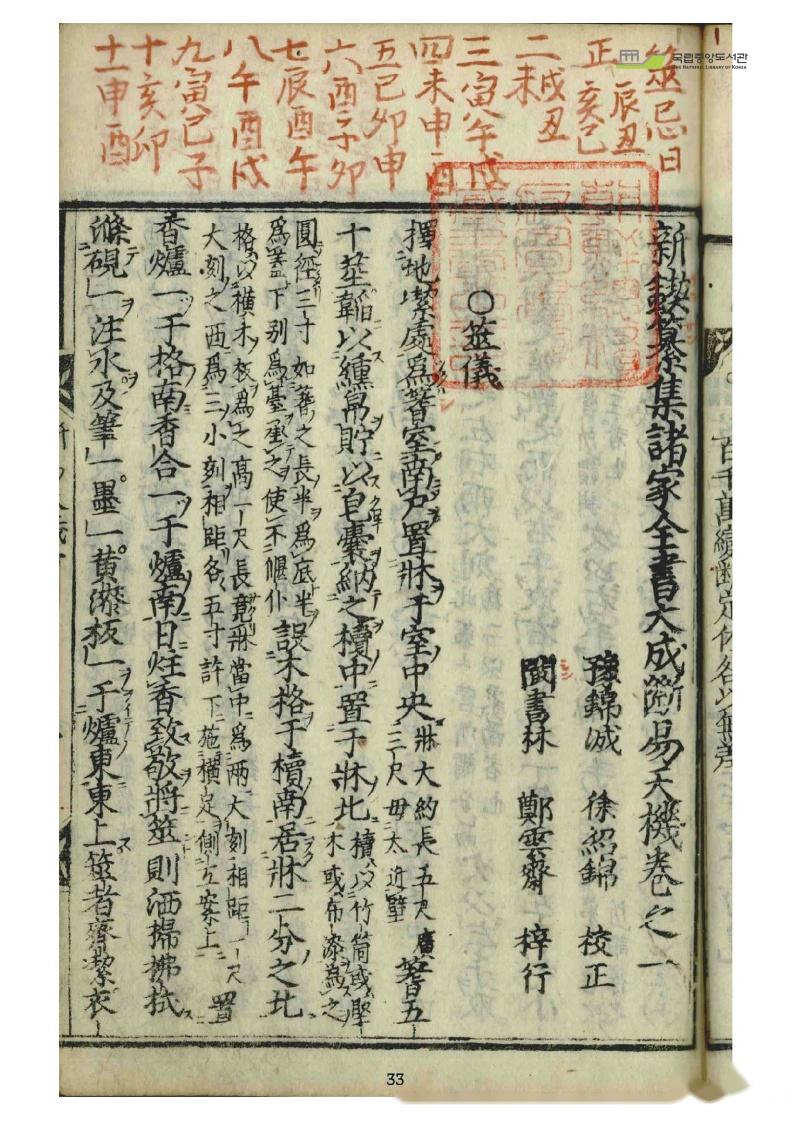 국립중앙도서관
THE NATIONAL LIBRARY OF KOREA
筮忌日
正 辰丑 亥巳
二 戌丑 未
三寅午戌
四未申酉
五巳卯申
六酉子卯
七辰酉午
八午酉戌
九寅巳子
十亥卯
十一申酉
新鍥纂集諸家全書大成斷易天機卷之一
豫錦誠 徐紹錦 校正
閩書林 鄭雲齋 梓行
○筮儀
擇地潔處爲蓍室南戶置牀于室中央 牀大約長五尺廣三尺毋太近壁 蓍五
十莖韜以纁帛貯以皂囊納之櫝中置于牀北 櫝以竹筒或堅木或布漆爲之
圓徑三寸如蓍之長半爲底半爲蓋下別爲臺承之使不偃仆 設木格于櫝南居牀二分之北
格以橫木板爲之高一尺長竟牀當中爲兩大刻相距一尺大刻之西爲三小刻相距各五寸許下施橫足側立案上 置
香爐一于格南香合一于爐南日炷香致敬將筮則洒掃拂拭
滌硯一注水及筆一墨一黄漆板一于爐東東上筮者齊潔衣
33